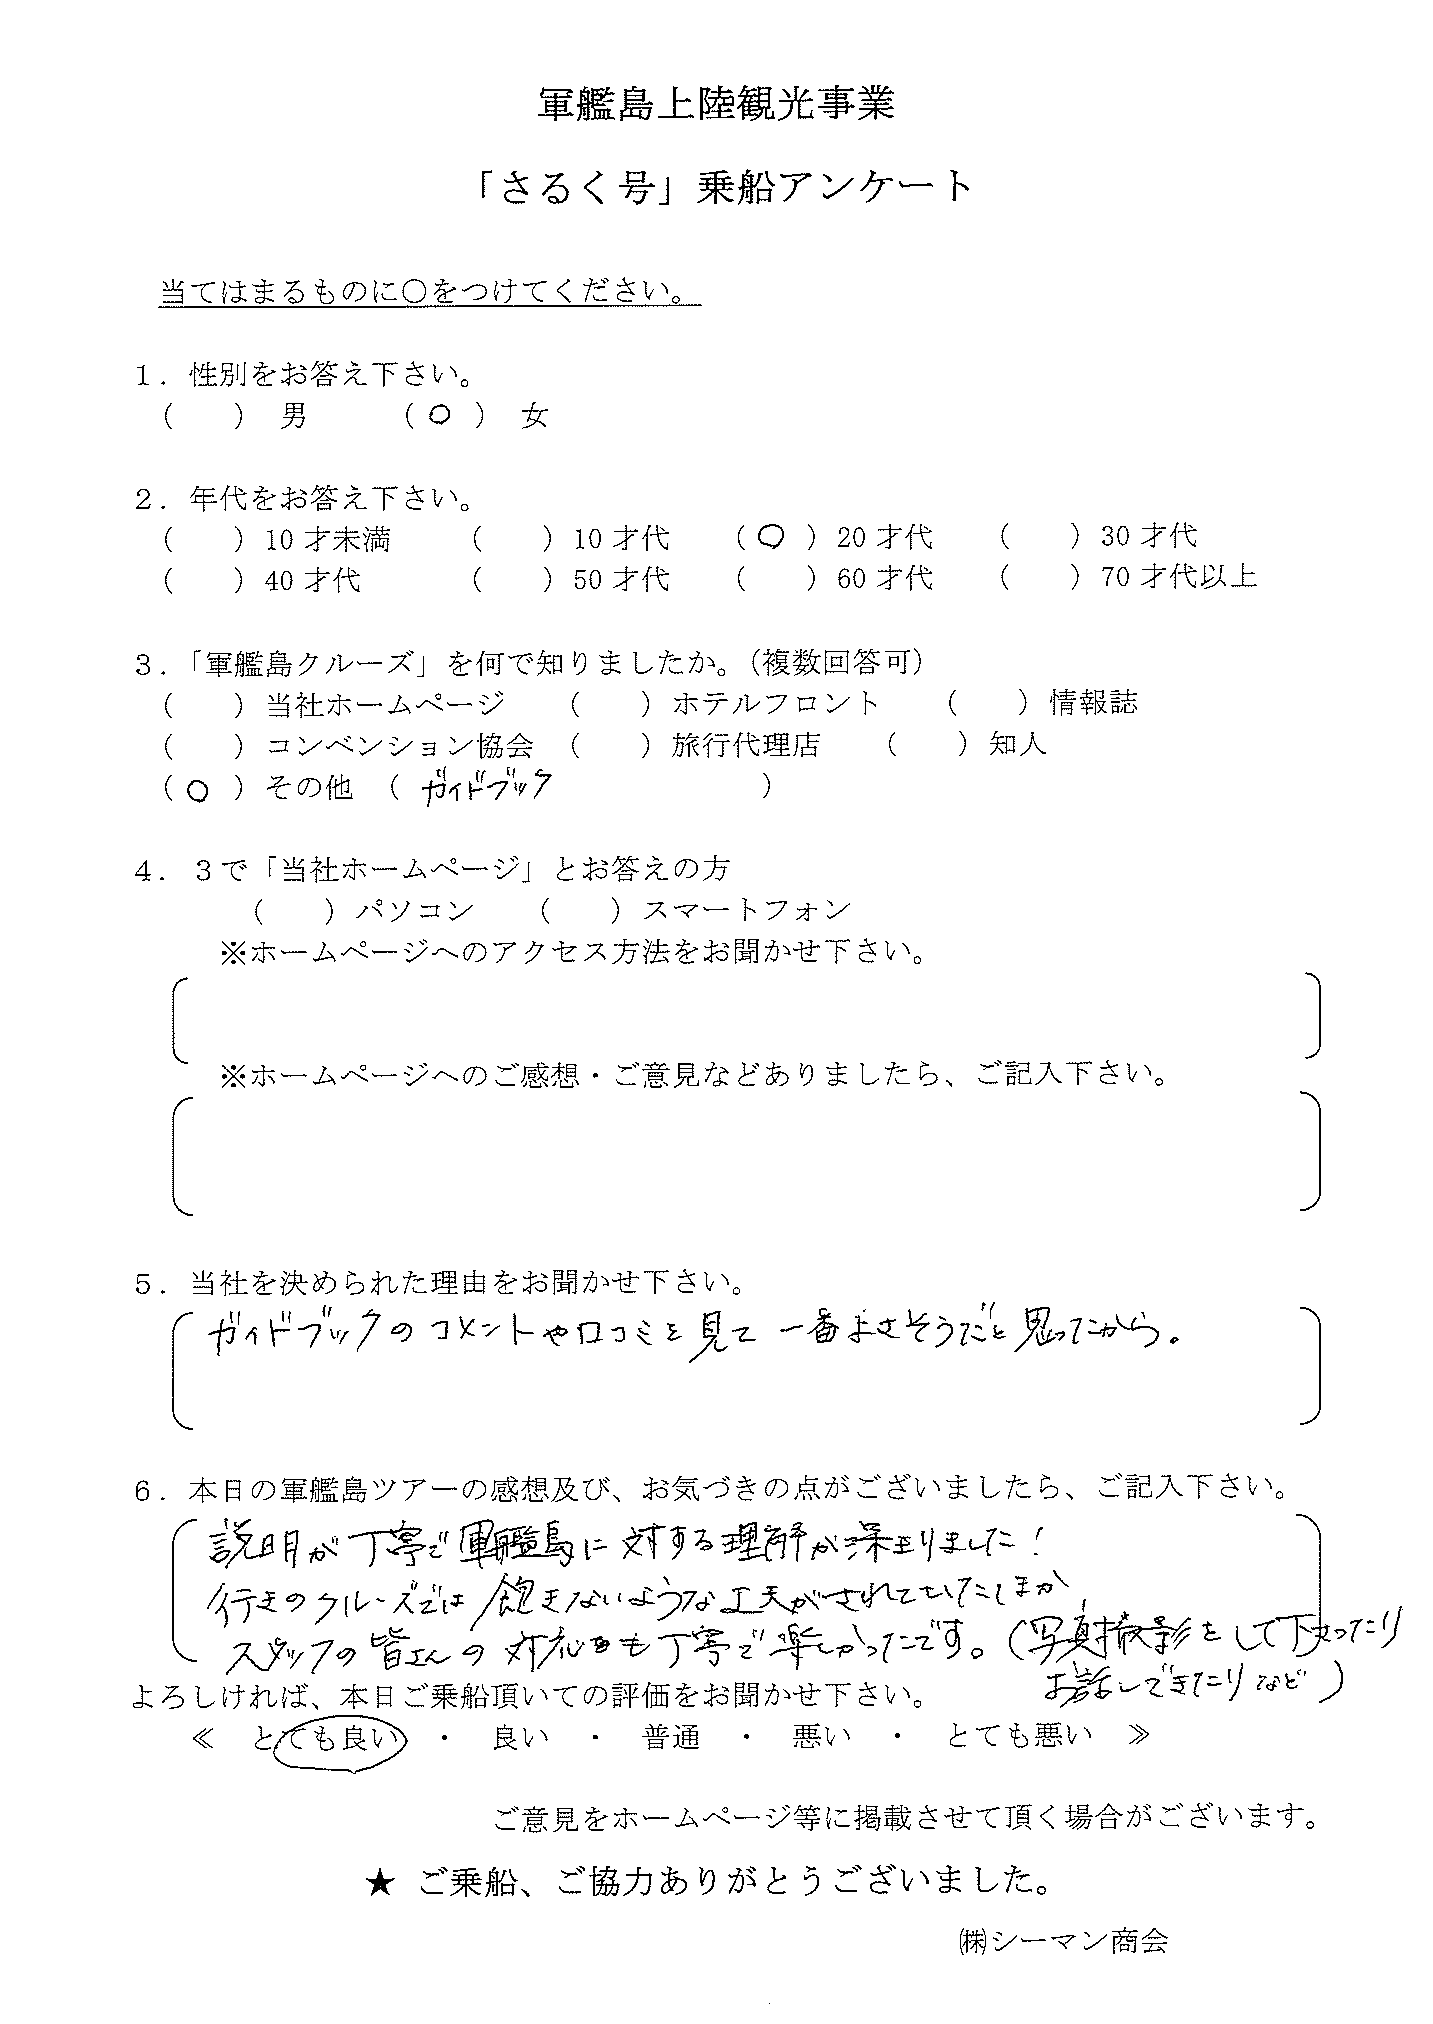 軍艦島上陸観光事業
「さるく号」乗船アンケート
当てはまるものに○をつけてください。
１．性別をお答え下さい。
（　　）　男　　　（ ○ ）　女
２．年代をお答え下さい。
（　　）10才未満　　（　　）10才代　　（ ○ ）20才代　　（　　）30才代
（　　）40才代　　（　　）50才代　　（　　）60才代　　（　　）70才代以上
３．「軍艦島クルーズ」を何で知りましたか。（複数回答可）
（　　）当社ホームページ　　（　　）ホテルフロント　　（　　）情報誌
（　　）コンベンション協会　（　　）旅行代理店　　（　　）知人
（ ○ ）その他　（　ガイドブック　　　　　　）
４．３で「当社ホームページ」とお答えの方
（　　）パソコン　　（　　）スマートフォン
※ホームページへのアクセス方法をお聞かせ下さい。
※ホームページへのご感想・ご意見などありましたら、ご記入下さい。
５．当社を決められた理由をお聞かせ下さい。
ガイドブックのコメントや口コミを見て一番よさそうだと思ったから。
６．本日の軍艦島ツアーの感想及び、お気づきの点がございましたら、ご記入下さい。
説明が丁寧で軍艦島に対する理解が深まりました！
行きのクルーズでは飽きないような工夫がされていたほか
スタッフの皆さんの対応も丁寧で楽しかったです。（写真撮影をして下さったり
お話しできたりなど）
よろしければ、本日ご乗船頂いての評価をお聞かせ下さい。
≪　とても良い　・　良い　・　普通　・　悪い　・　とても悪い　≫
ご意見をホームページ等に掲載させて頂く場合がございます。
★　ご乗船、ご協力ありがとうございました。
㈱シーマン商会